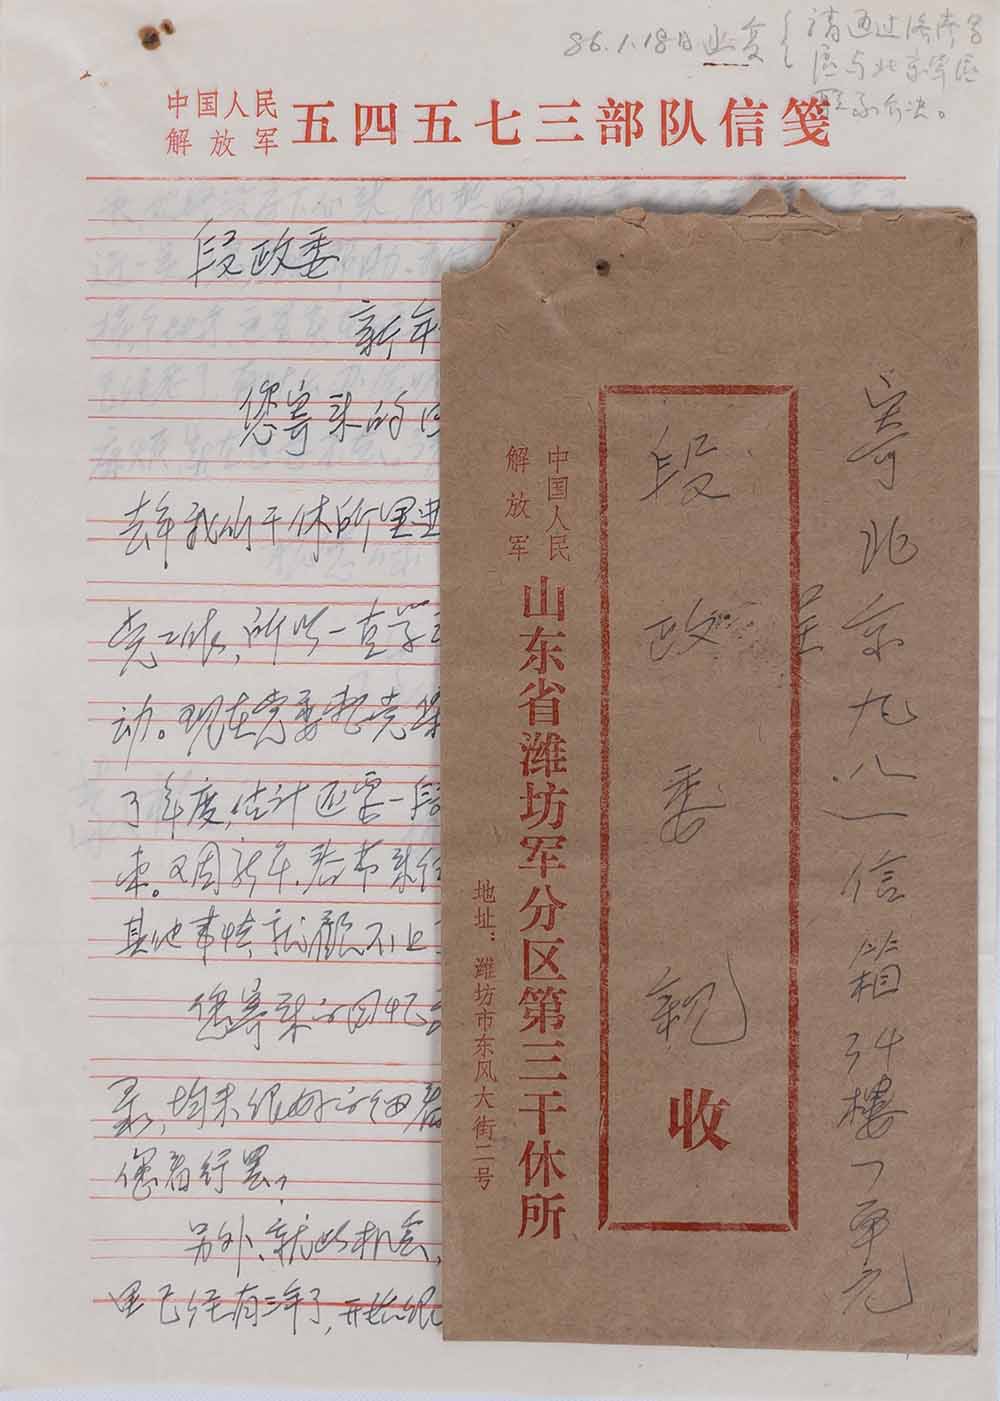 86.1.18日已复
请通过济南军
区与北京军区
联系解决。
中国人民
解放军
五四五七三部队信笺
段政委
新年
您寄来的
去年我们干休所里
党工作,所以一直学
动。现在党委把党
了年度,估计还要一段
束。又因新年、春节来
其他事情,就顾不上
您寄来的回忆
录,均未很好的细看
您看行吗?
另外,就此机会,
里已经有三年了,开始
寄北京九八一信箱34楼一单元
呈
段政委亲
收
中国人民
解放军
山东省潍坊军分区第三干休所
地址:潍坊市东风大街二号